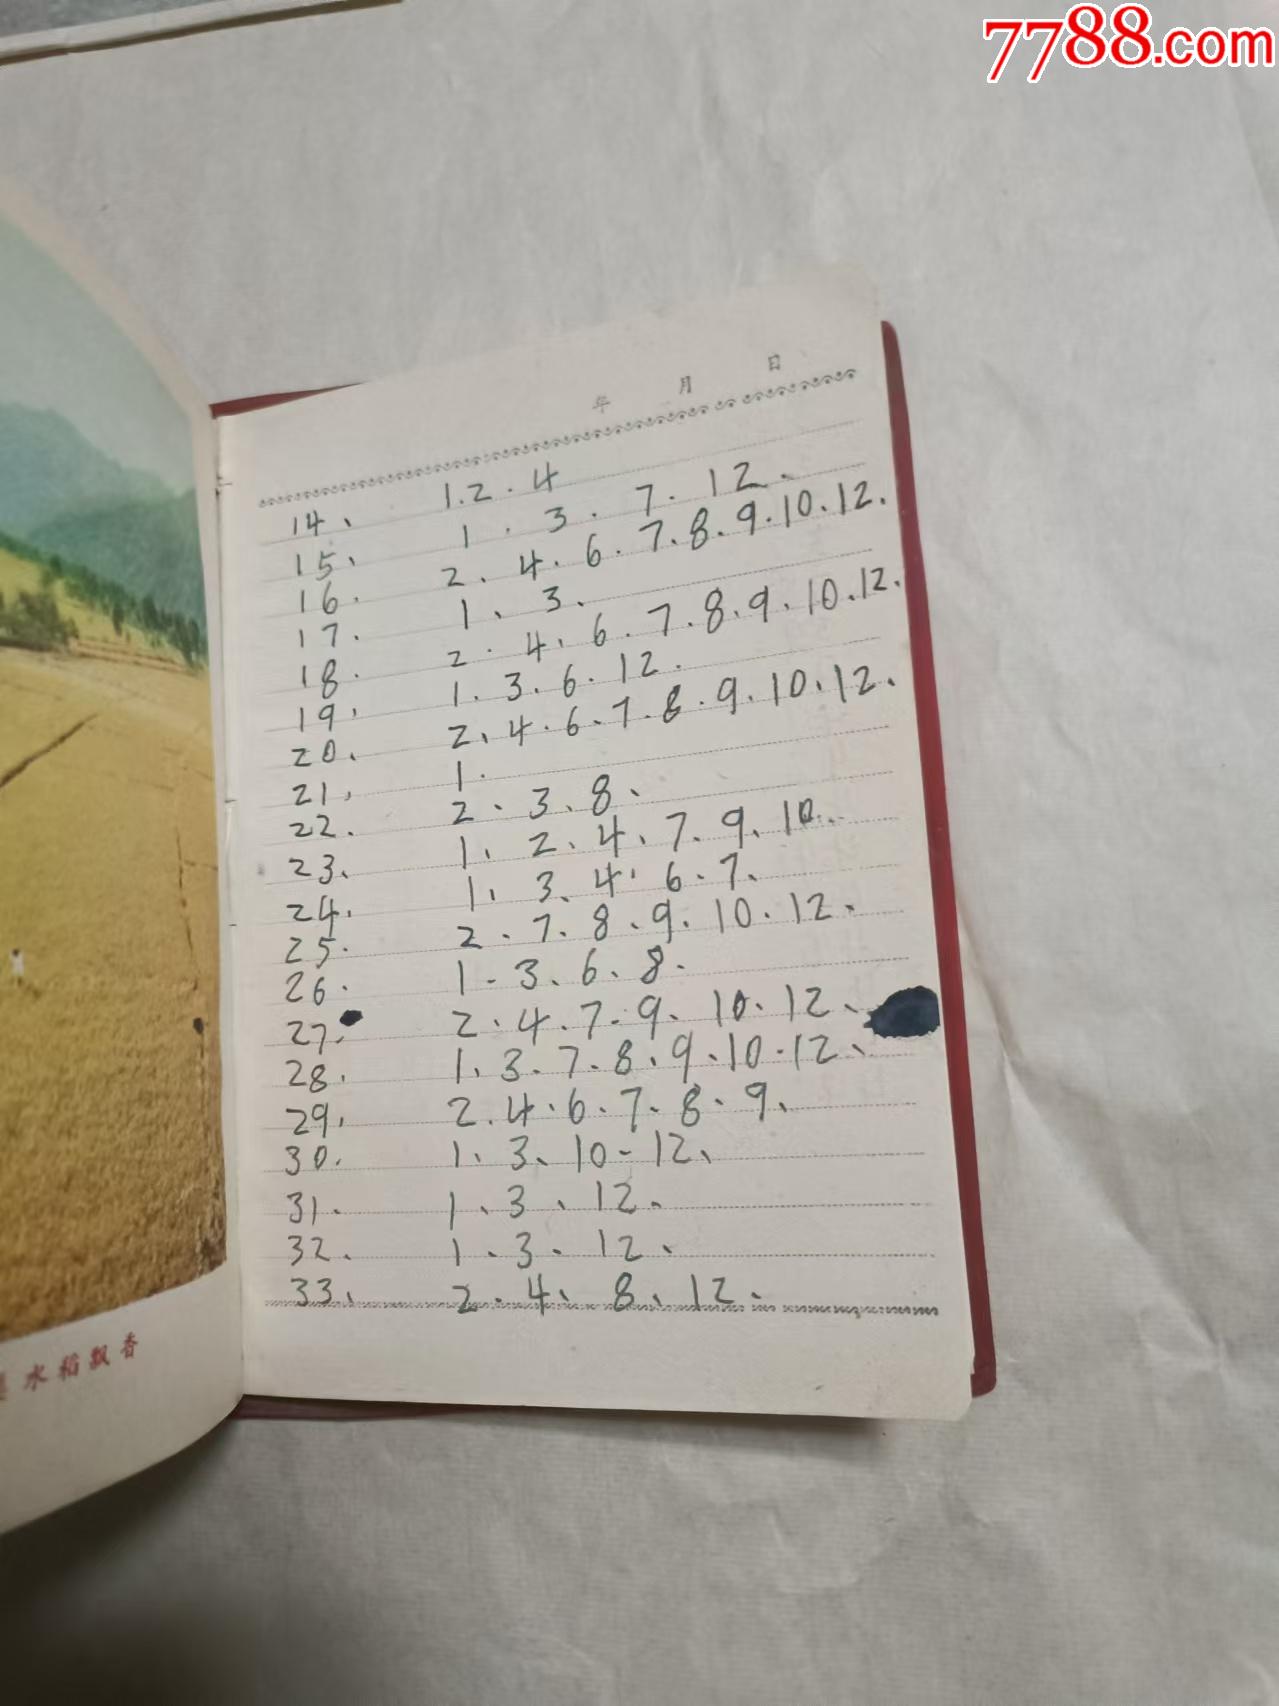 7788.com
年 月 日
14、 1.2.4
15、 1.3.7.12.
16. 2.4.6.7.8.9.10.12.
17. 1、3.
18. 2.4、6.7.8.9.10.12.
19、 1.3.6.12.
20、 2、4.6.7.8.9.10.12.
21、 1.
22. 2.3.8、
23、 1、2、4、7.9、10.
24. 1、3、4、6.7、
25. 2.7.8、9.10.12.
26. 1.3、6、8.
27. 2.4.7.9、10.12、
28. 1、3.7.8、9、10.12、
29、 2.4.6.7.8.9、
30. 1、3、10-12、
31. 1、3、12.
32. 1.3.12、
33、 2.4、8、12.
水稻飘香